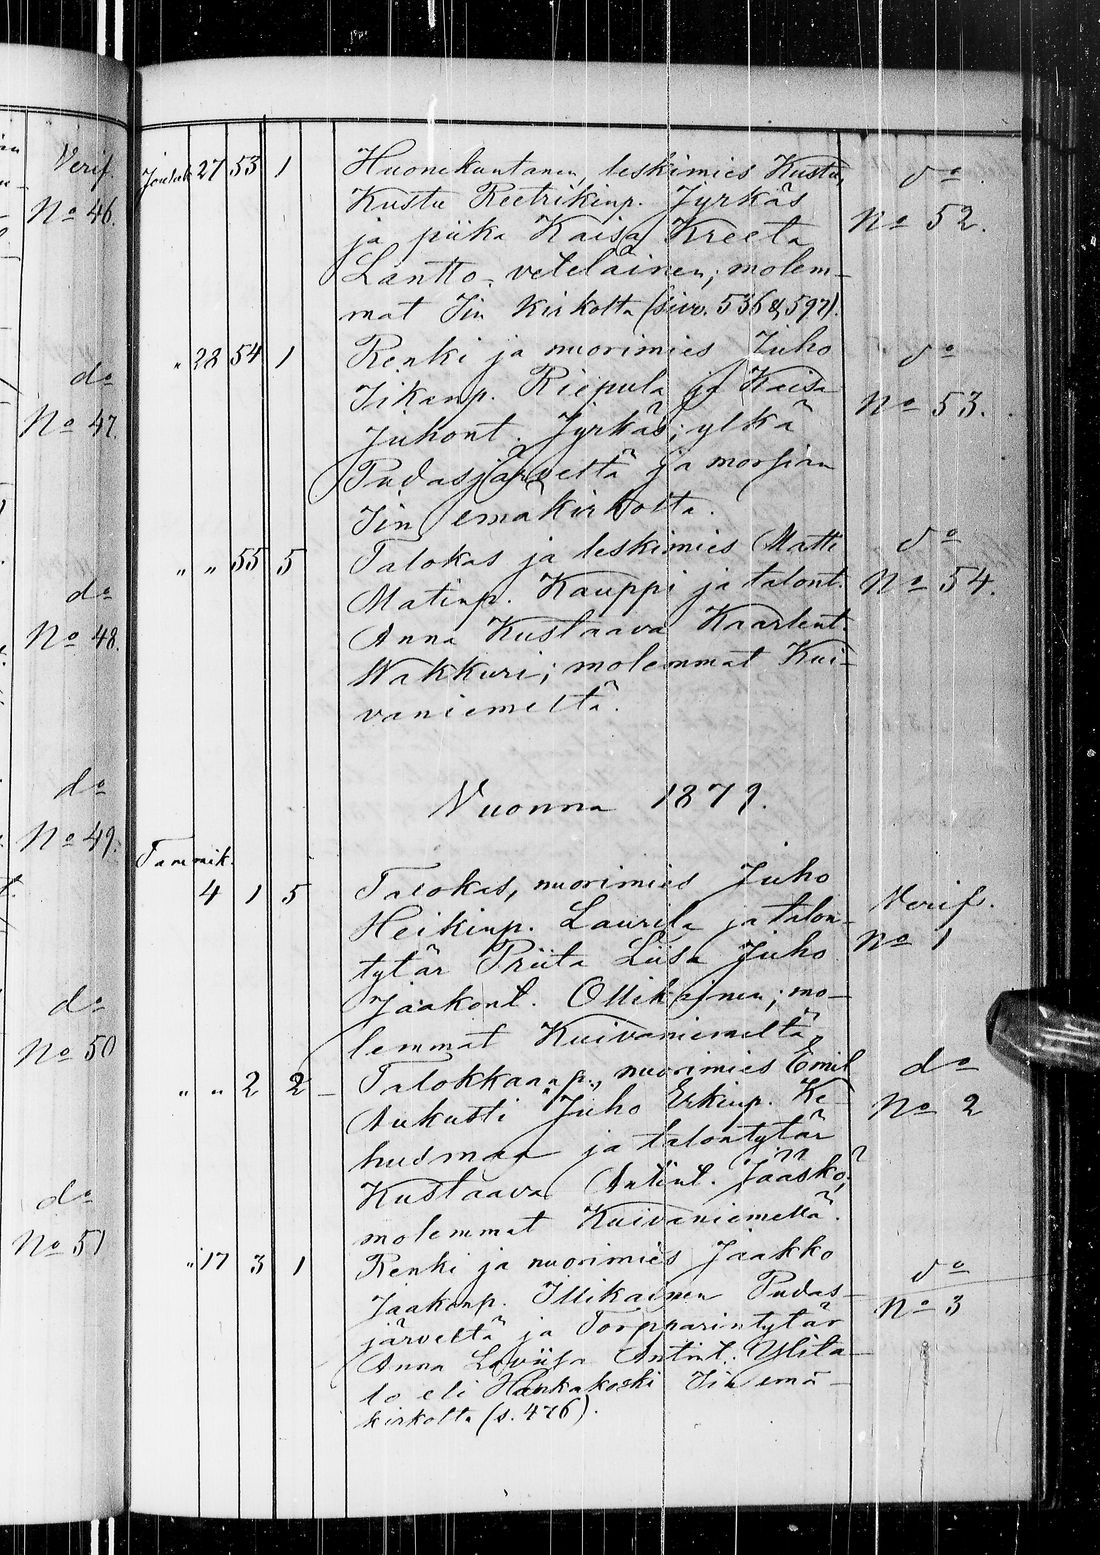 Verif.
No 46.
do
No 47.
do
No 48.
do
No 49.
do
No 50
do
No 51
Jouluk 27 53 1 Huonekuntanen, leskimies Kustu,
Kustu Reetrikinp. Jyrkäs
do
No 52.
ja piika Kaisa Kreeta
Lantto, veteläinen; molem-
mat Iin Kirkolta (siv. 536 & 597).
" 28 54 1 Renki ja nuorimies Juho
do
Iikanp. Riepula ja Kaisa
No 53.
Juhont. Jyrkäs; ylkä
Pudasjärveltä ja morsian
Iin emäkirkolta.
" " 55 5 Talokas ja leskimies Matti
do
Matinp. Kauppi ja talont.
No 54.
Anna Kustaava Kaarlent.
Wakkuri; molemmat Kui-
vaniemeltä.
Vuonna 1879.
Tammik.
4 1 5 Talokas, nuorimies Juho
Verif.
Heikinp. Laurila ja talon-
No 1
tytär Priita Liisa Juho
Jaakont. Ollikainen; mo-
lemmat Kuivaniemeltä
" " 2 2 Talokkaanp., nuorimies Emil
do
Aukusti Juho Erkinp. Ke-
No 2
husmaa ja talontytär
Kustaava Antint. Jääskö;
molemmat Kuivaniemeltä.
" 17 3 1 Renki ja nuorimies Jaakko
do
Jaakonp. Illikainen Pudas-
No 3
järveltä ja Torpparintytär
Anna Loviisa Antint. Ylita-
lo eli Hankakoski Iin emä-
kirkolta (s. 476).